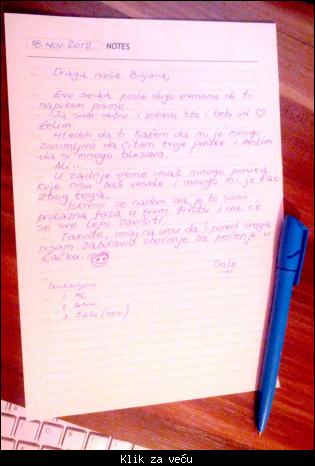 18. NOV. 2012. NOTES
Draga naša Biljana,
Evo se opet posle dugo vremena da ti
napišem pismo.
Ja sam dobro i zdravo što i tebi od ♡
želim.
Htedoh da ti kažem da mi je mnogo
zanimljivo da čitam tvoje poruke i mislim
da si mnogo blesava.
Ali...
U zadnje vreme imaš mnogo poruka
koje nisu baš vesele i mnogo mi je žao
zbog toga.
Iskreno se nadam da je to samo
prolazna faza u tvom životu i da će
se sve lepo završiti.
Takođe, imaj na umu da i pored svega
nisam zaboravio obećanje za pečenje u
Čačku.
Sale
Dostavljeno:
1.
2.
3. Sale
Klik za veću